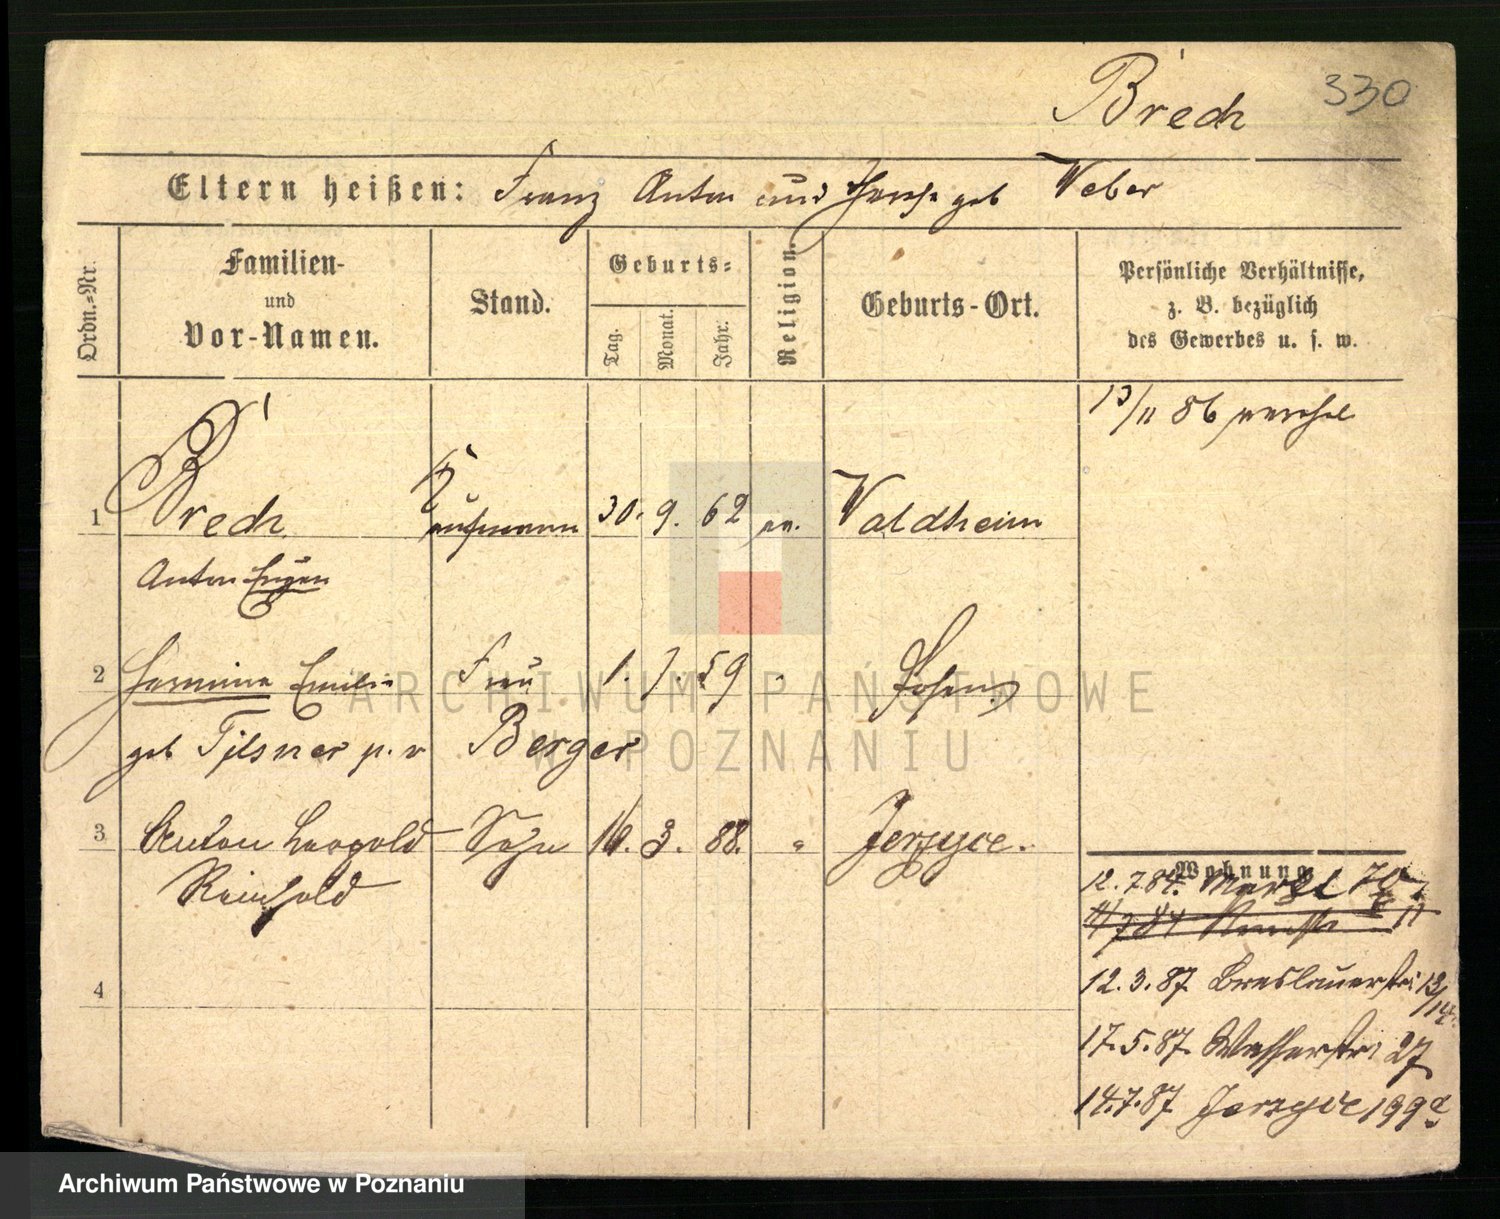 Brech 330
Eltern heißen: Franz Anton und geb Weber
Ordn.-Nr.
Familien-
und
Vor-Namen.
Stand.
Geburts-
Tag.
Monat.
Jahr.
Religion.
Geburts-Ort.
Persönliche Verhältnisse,
z. B. bezüglich
des Gewerbes u. s. w.
13/11 86
1 Brech Kaufmann 30. 9. 62 Waldheim
Anton Eugen
2 Hermine Emilie Frau 1. 7. 59 Posen
geb Tilsner Berger
3 Anton Leopold Sohn 3. 88. " Jerzyce.
Reinhold
4
Wohnung
12.7.84. Markt
12.3.87. Breslauerstr. 13/14.
17.5.87. Wasserstr. 27
14.7.87 Jerzyce 199a
ARCHIWUM PAŃSTWOWE
W POZNANIU
Archiwum Państwowe w Poznaniu